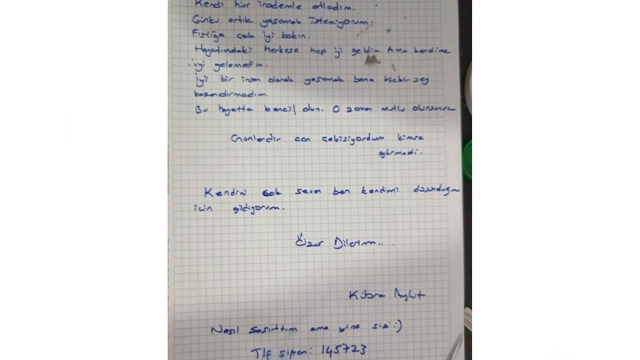 Kendi hür irademle atladım.
Çünkü artık yaşamak istemiyorum.
Fıstığa çok iyi bakın.
Hayatımdaki herkese hep iyi geldim Ama kendime
iyi gelemedim.
İyi bir insan olarak yaşamak bana hiçbir şey
kazandırmadı.
Bu hayatta bencil olun. O zaman mutlu olursunuz
can çekişiyordum kimse
görmedi.
Kendini çok seven ben kendimi
için gidiyorum.
Özür Dilerim..
Kübra Aylut
Nasıl şaşırttım ama yine sizi :)
Tlf şifrem: 145723